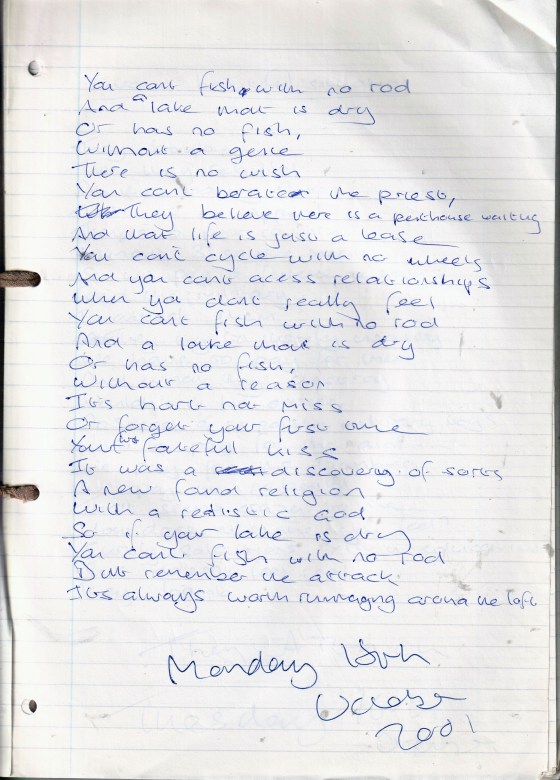 You cant fish with no rod
And a lake that is dry
Or has no fish,
Without a genie
There is no wish
You can't berate the priest,
They believe there is a penthouse waiting
And that life is just a lease
You can't cycle with no wheels
And you cant acess relationships
When you dont really feel
You cant fish with no rod
And a lake that is dry
Or has no fish,
Without a reason
Its hart not miss
Or forget your first time
Your first fateful kiss
It was a discovery of sorts
A new fond religion
With a realistic God
So if your lake is dry
You can't fish with no rod
But remember the attack
Its always worth rummaging around the loft
Monday 15th
October
2001